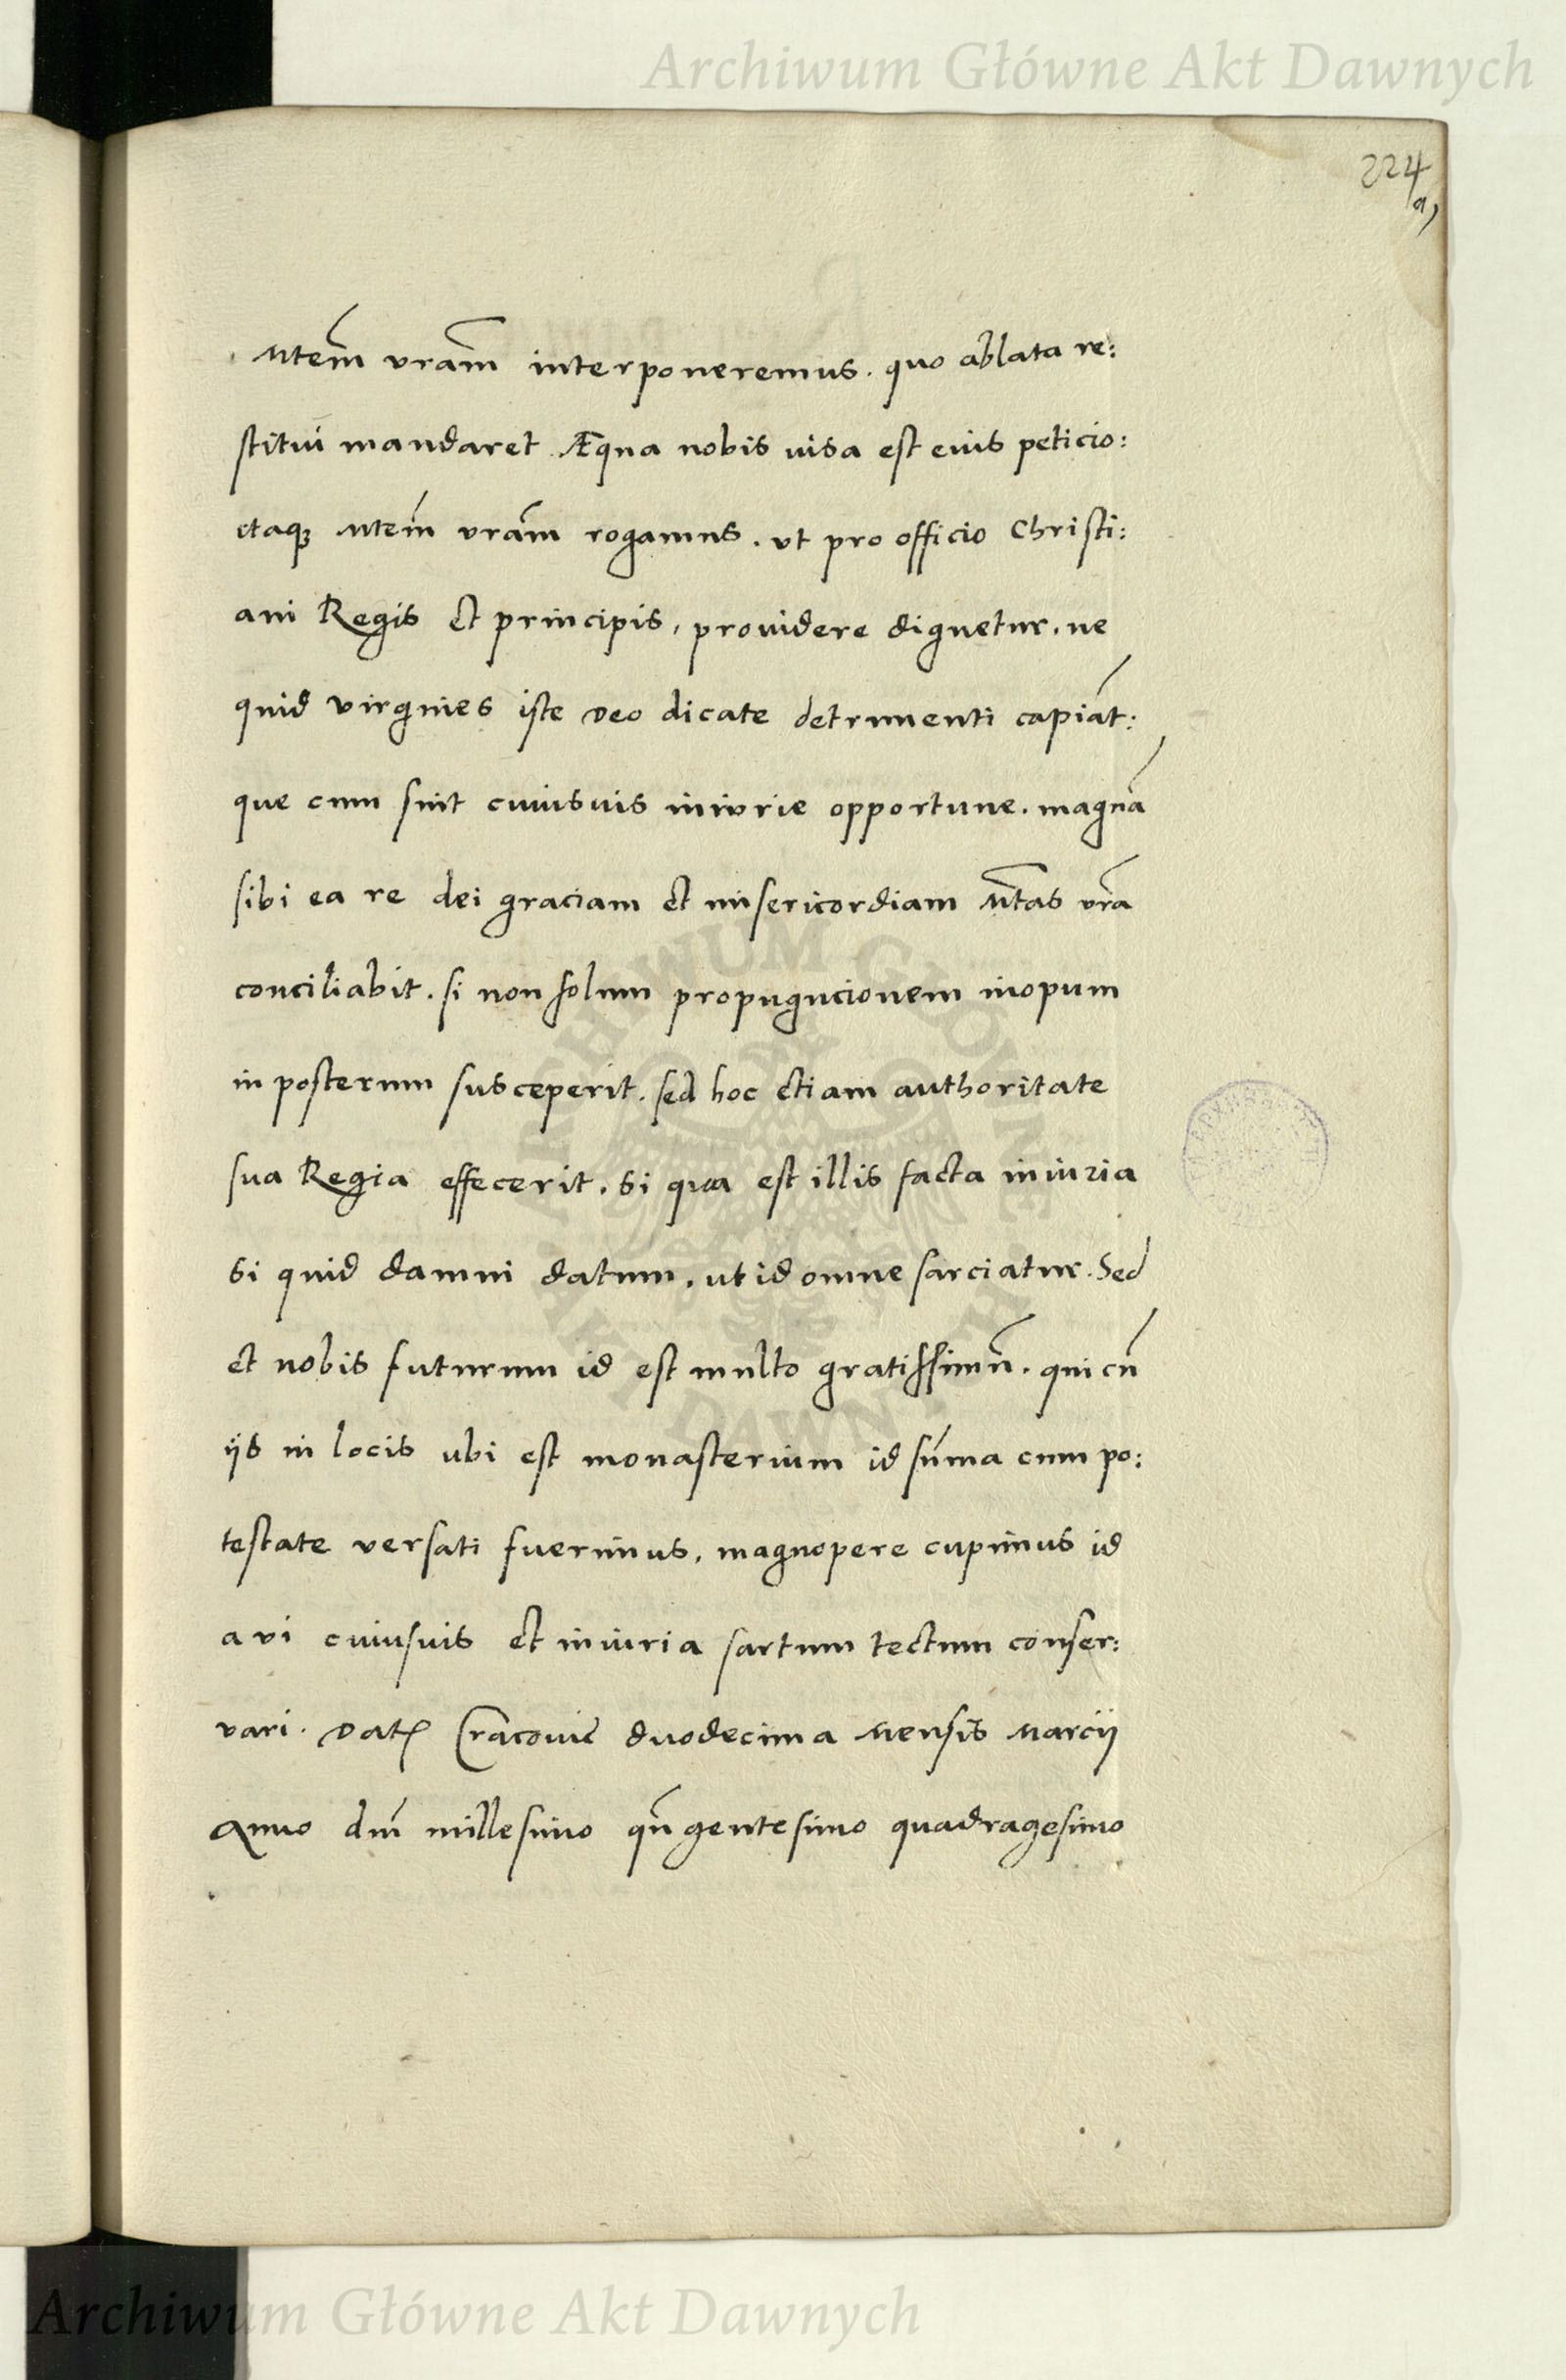 Archiwum Główne Akt Dawnych
224
a)
Mtem̄ vram̄ interponeremus. quo ablata re:
stitui mandaret. Æqua nobis uisa est eius peticio:
itaqꝫ Mtem̄ vram̄ rogamus. vt pro officio Christi:
ani Regis et principis, prouidere dignetur. ne
quid virgines iste Deo dicate detrimenti capiāt:
que cum sint cuiusuis iniurie opportune. magnā
sibi ea re dei graciam et misericordiam M̄tas vrā
conciliabit. si non solum propugncionem inopum
in posterum susceperit. sed hoc etiam authoritate
sua Regia effecerit. Si qua est illis facta iniuria
Si quid damni datum. ut id omne sarciatur. Sed
et nobis futurum id est multo gratissimū. qui cū
ijs in locis ubi est monasterium id sūma cum po:
testate versati fuerimus, magnopere cupimus id
a vi cuiusuis et iniuria sartum tectum conser:
vari. Datꝭ Cracovie duodecima Mensis Marcij
Anno dnī millesimo qūgentesimo quadragesimo
ARCHIWUM GŁÓWNE
AKT DAWNYCH
Archiwum Główne Akt Dawnych